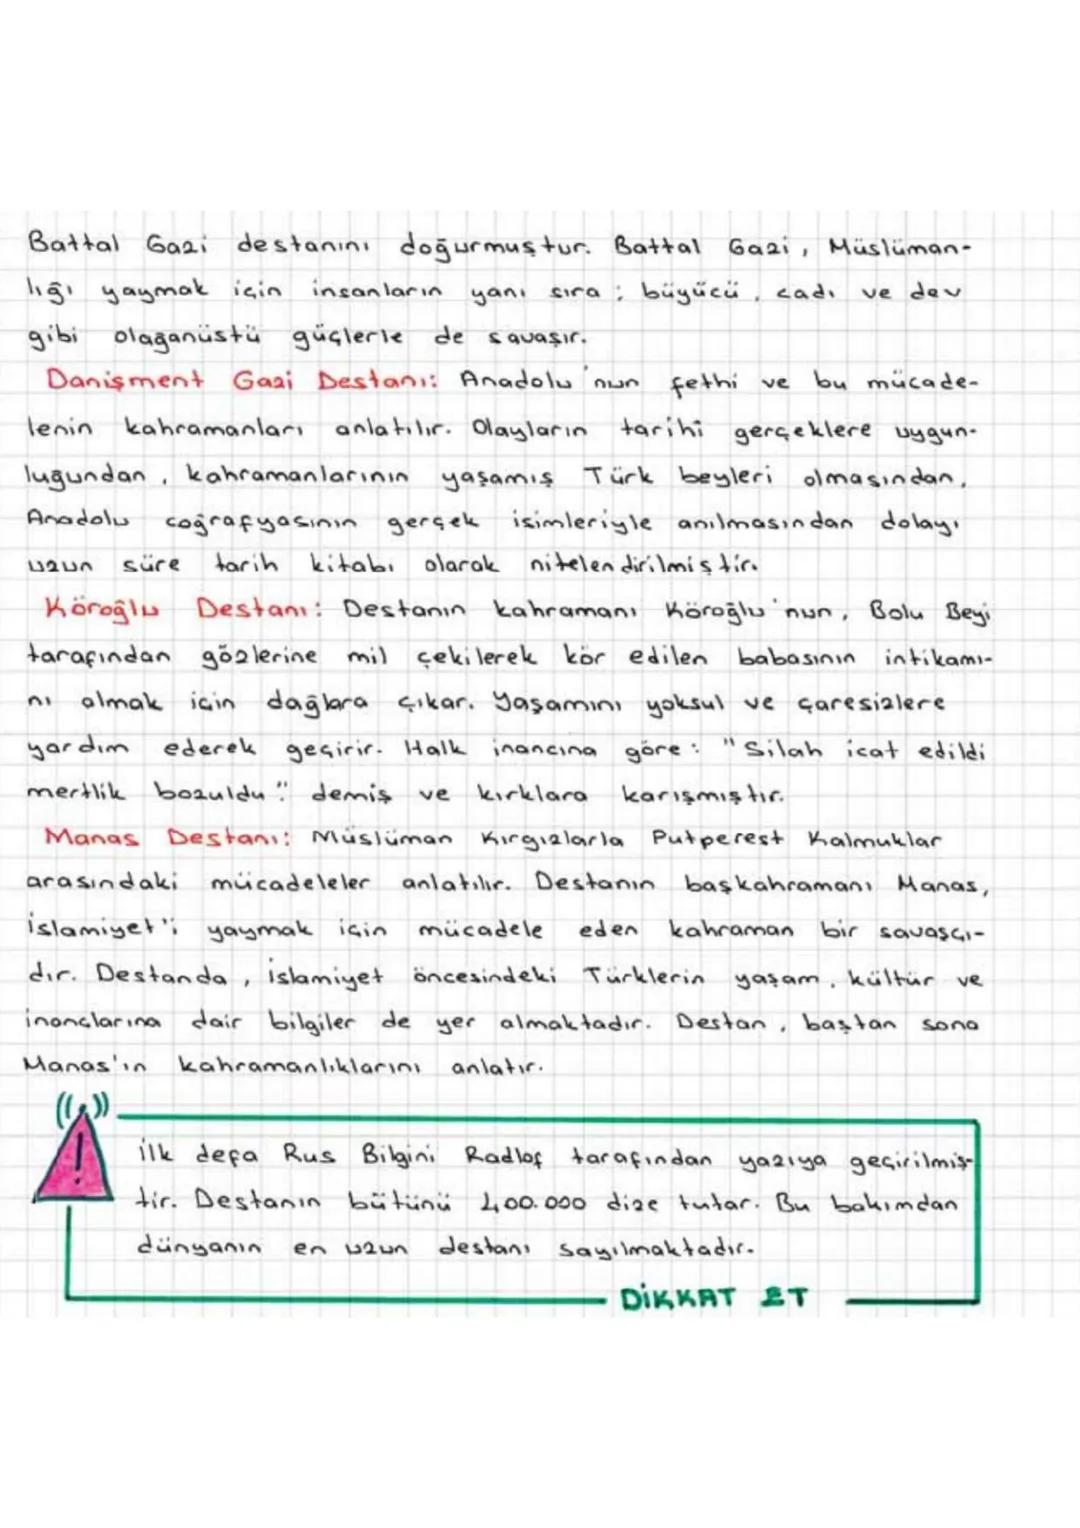 Battal Gazi destanını doğurmuştur. Battal Gazi, Müslüman-
lığı yaymak için insanların yanı sıra; büyücü, cadı ve dev
gibi olağanüstü güçlerle de savaşır.
Danişment Gazi Destanı: Anadolu'nun fethi ve bu mücade-
lenin kahramanları anlatılır. Olayların tarihî gerçeklere uygun-
luğundan, kahramanlarının yaşamış Türk beyleri olmasından,
Anadolu coğrafyasının gerçek isimleriyle anılmasından dolayı
uzun süre tarih kitabı olarak nitelendirilmiştir.
Köroğlu Destanı: Destanın kahramanı Köroğlu'nun, Bolu Beyi
tarafından gözlerine mil çekilerek kör edilen babasının intikamı-
nı almak için dağlara çıkar. Yaşamını yoksul ve çaresizlere
yardım ederek geçirir. Halk inancına göre: "Silah icat edildi
mertlik bozuldu." demiş ve kırklara karışmıştır.
Manas Destanı: Müslüman Kırgızlarla Putperest Kalmuklar
arasındaki mücadeleler anlatılır. Destanın başkahramanı Manas,
İslamiyet'i yaymak için mücadele eden kahraman bir savaşçı-
dır. Destanda, İslamiyet öncesindeki Türklerin yaşam, kültür ve
inançlarına dair bilgiler de yer almaktadır. Destan, baştan sona
Manas'ın kahramanlıklarını anlatır.
! İlk defa Rus Bilgini Radlof tarafından yazıya geçirilmiş-
tir. Destanın bütünü 400.000 dize tutar. Bu bakımdan
dünyanın en uzun destanı sayılmaktadır.
DİKKAT ET